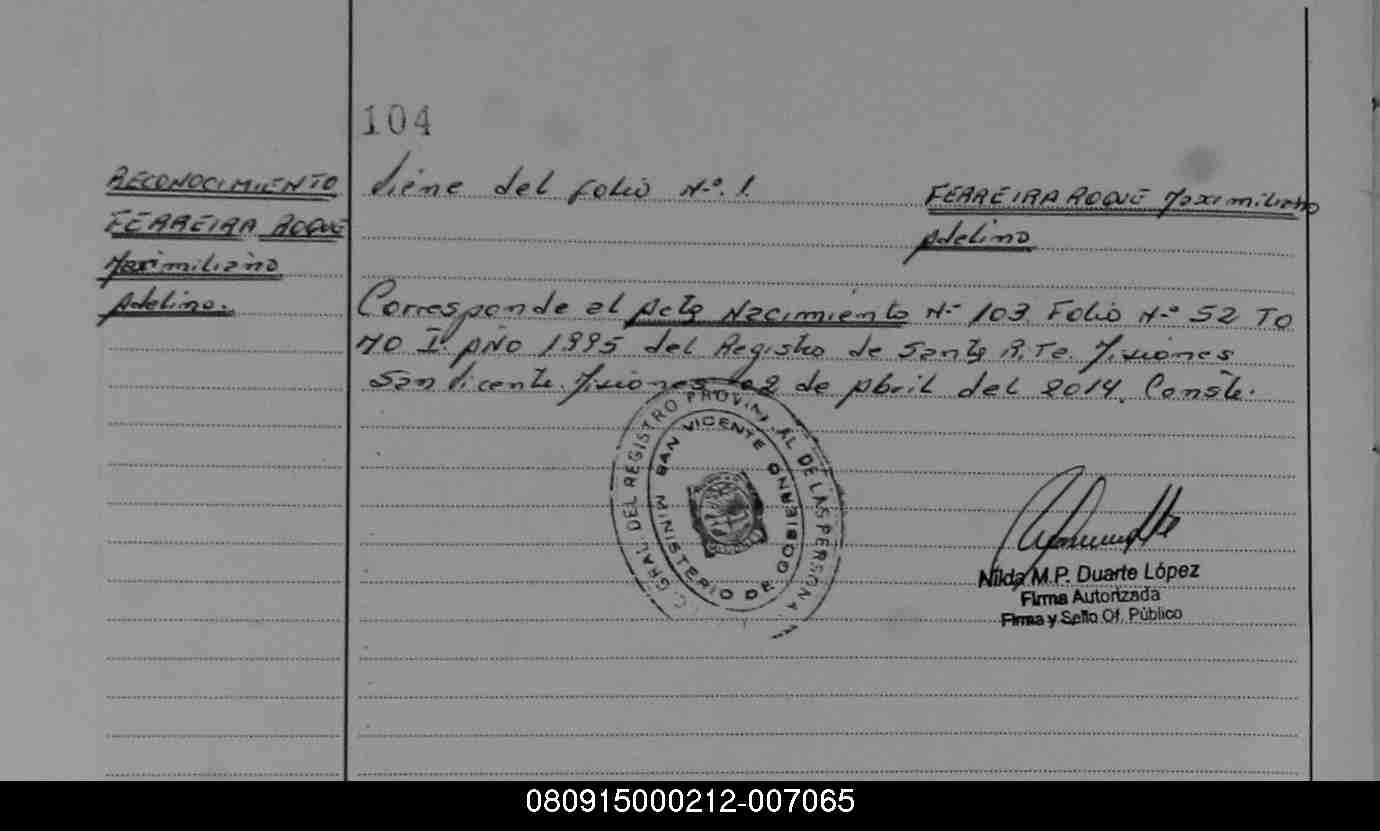 104
RECONOCIMIENTO
FERREIRA ROQUE
Maximiliano
Adelino.
Viene del folio N.º 1.
FERREIRA ROQUE Maximiliano
Adelino
Corresponde al Acta Nacimiento Nº 103 Folio N.º 52 TO
MO I AÑO 1995 del Registro de Santa Rita. Misiones
San Vicente. Misiones 02 de Abril del 2014. Conste.
GRAL DEL REGISTRO PROVIN AL DE LAS PERSONA
SAN VICENTE
MINISTERIO DE GOBIERNO
Nilda M.P. Duarte López
Firma Autorizada
Firma y Sello Of. Público
080915000212-007065